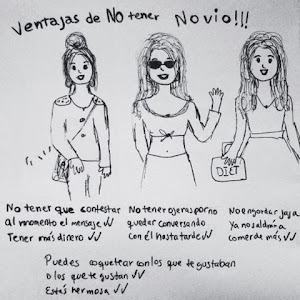 Ventajas de NO tener Novio!!!
DIET
No tener que contestar
al momento el mensaje ✓✓
Tener más dinero ✓✓
No tener ojeras por no
quedar conversando
con él hasta tarde ✓✓
No engordar jaja
Ya no saldrán a
comer de más ✓✓
Puedes coquetear con los que te gustaban
o los que te gustan ✓✓
Estás hermosa ✓✓